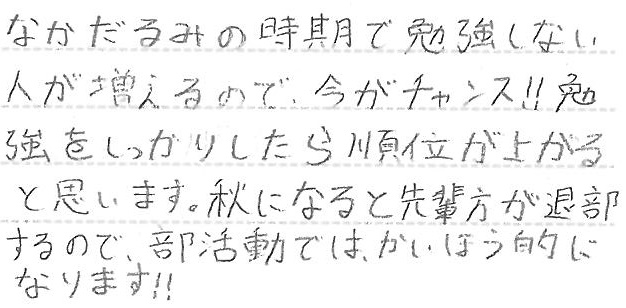 なかだるみの時期で勉強しない
人が増えるので、今がチャンス!!勉
強をしっかりしたら順位が上がる
と思います。秋になると先輩方が退部
するので、部活動では、かいほう的に
なります!!